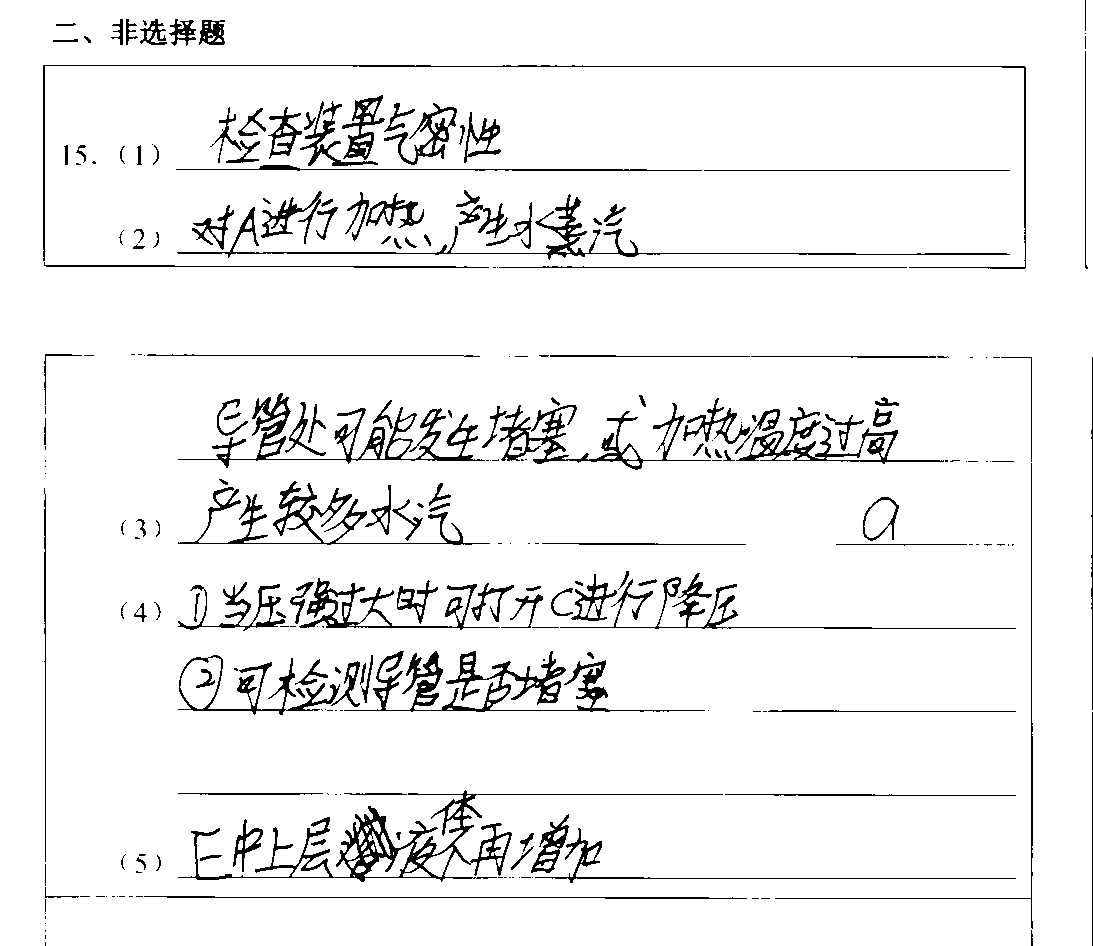 二、非选择题
15.（1） 检查装置气密性
（2） 对A进行加热,产生水蒸汽
导管处可能发生堵塞,或加热温度过高
（3） 产生较多水汽 a
（4） ①当压强过大时可打开C进行降压
②可检测导管是否堵塞
（5） E中上层液体不再增加